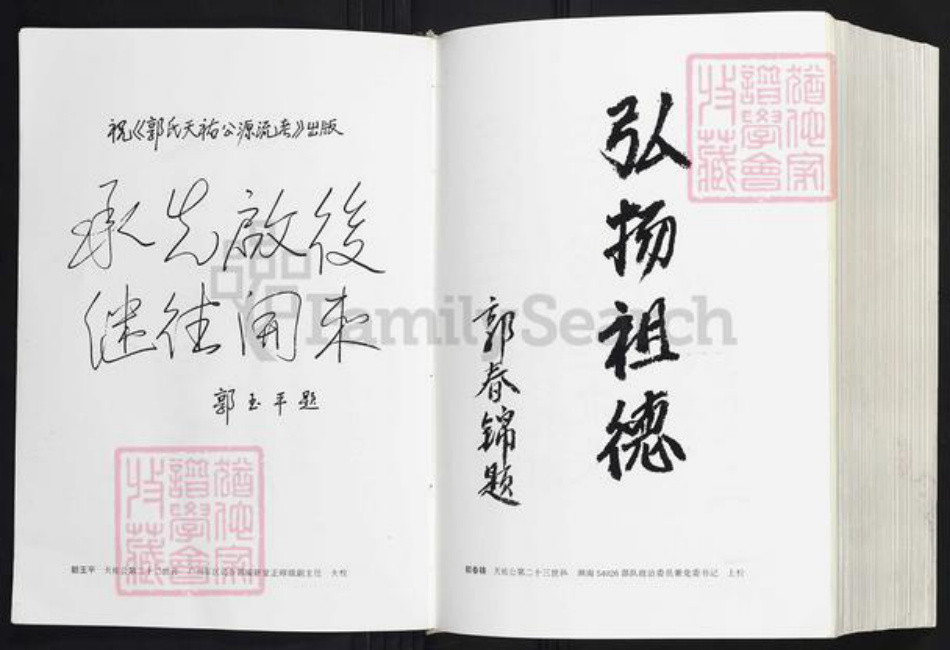 祝《郭氏天祐公源流考》出版
承先啟後
继往開来
郭玉平题
郭玉平 天祐公第二十二世孙
正师级副主任 大校
弘扬祖德
郭春锦题
郭春锦 天祐公第二十三世孙 渤海 54026 部队政治委员兼党委书记 上校
猶他家譜學會收藏
猶他家譜學會收藏
FamilySearch